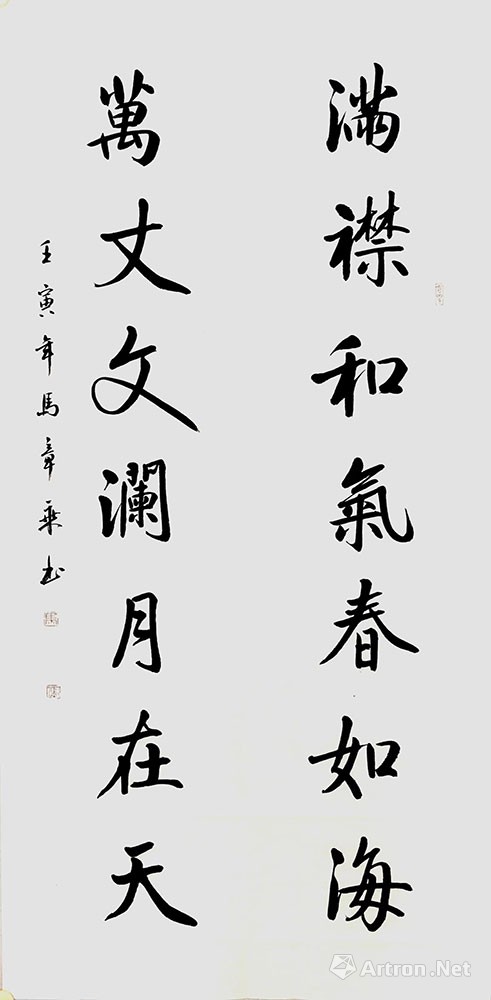 滿襟和氣春如海
萬丈文瀾月在天
壬寅年馬章乘书
雅昌
Artron.Net